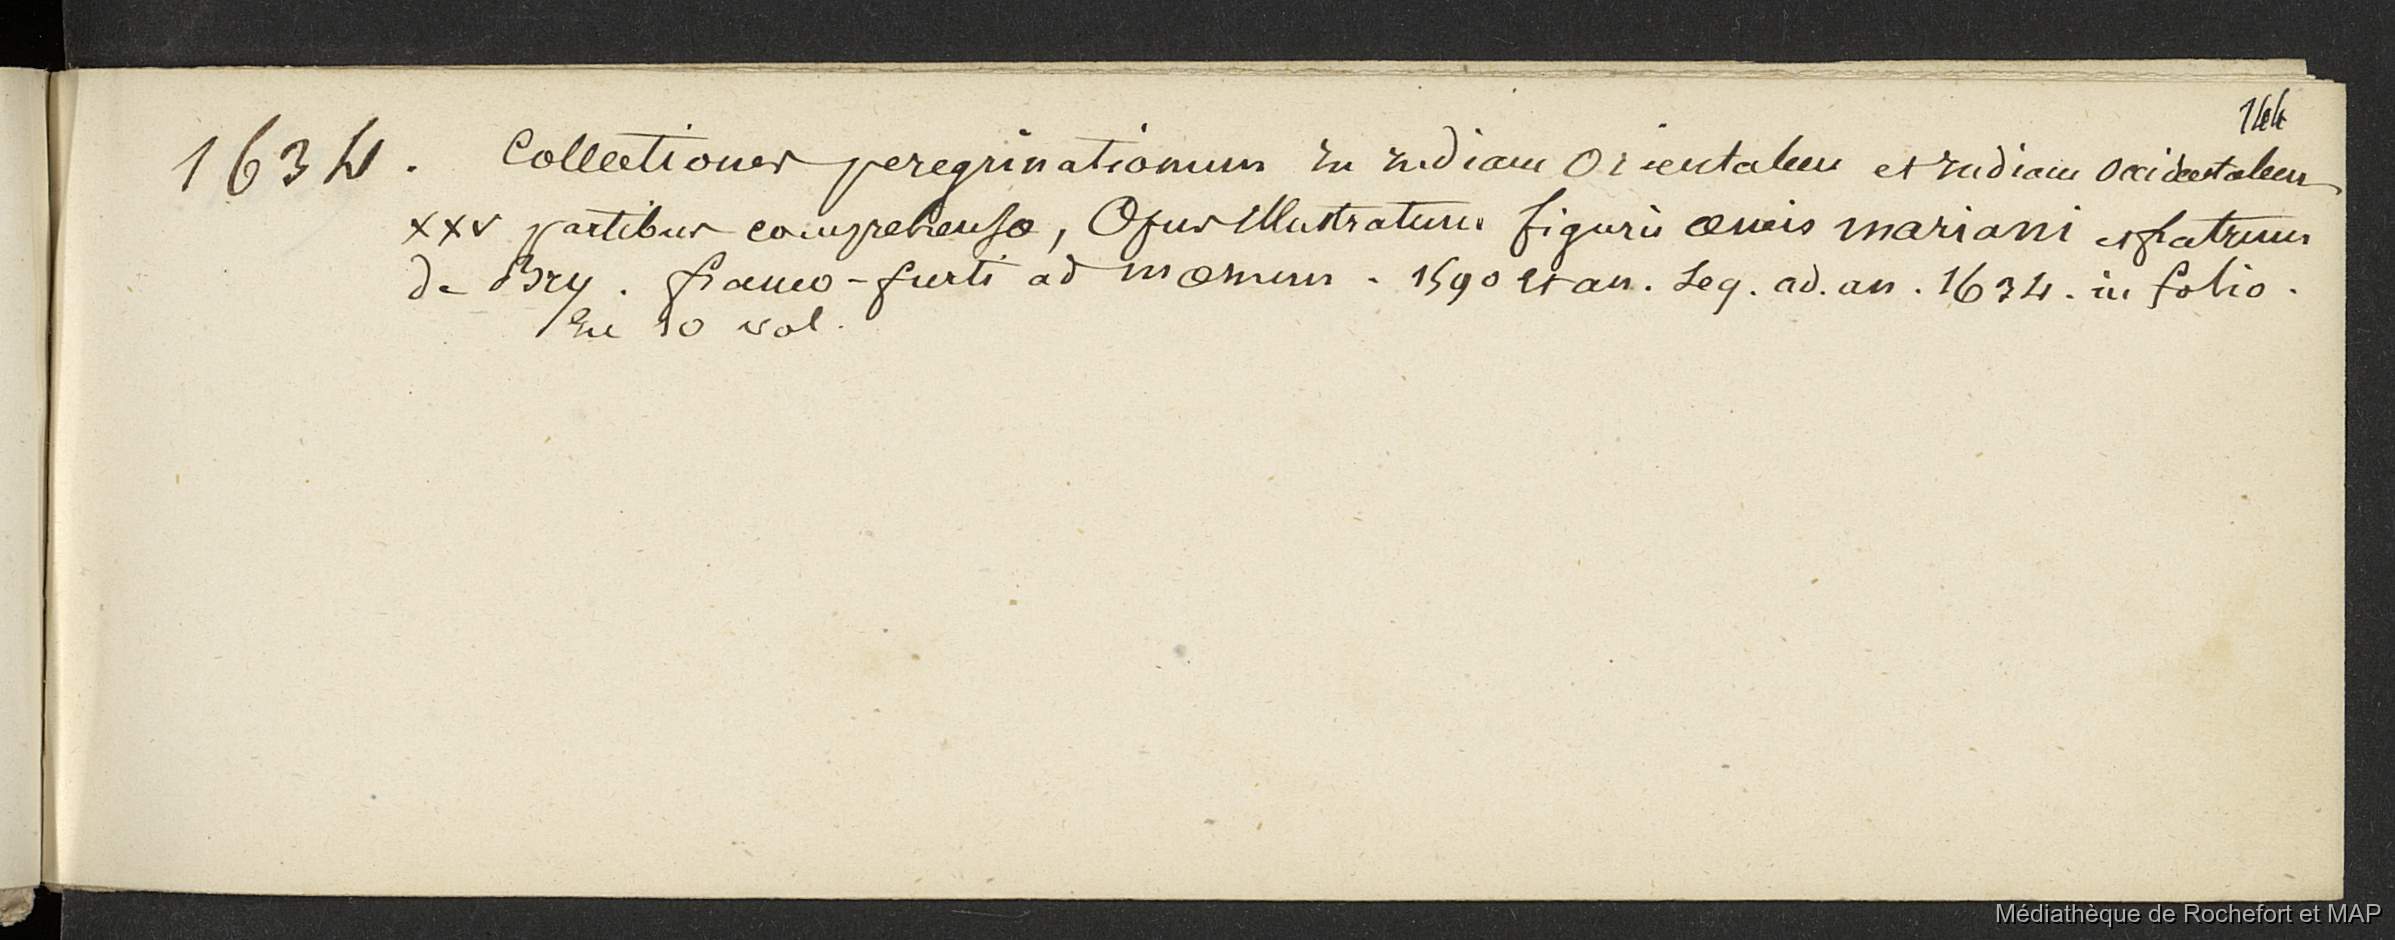 144
1634. Collectiones peregrinationum in indiam Orientalem et indiam Occidentalem
xxv partibus comprehensæ, Opus illustratum figuris æneis mariani et fratrum
de Bry. franco-furti ad mœnum. 1590 et an. seq. ad. an. 1634. in folio.
En 10 vol.
Médiathèque de Rochefort et MAP